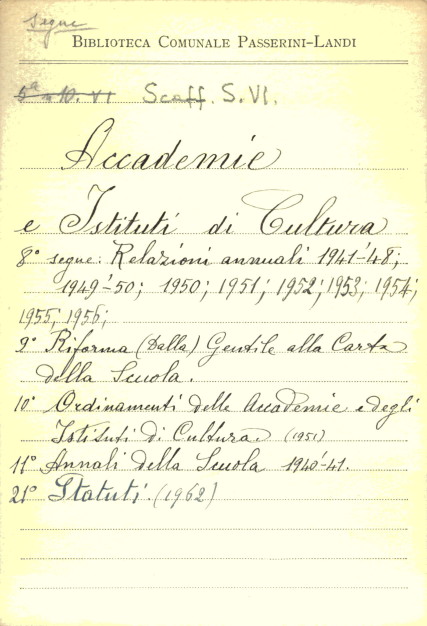 segue
BIBLIOTECA COMUNALE PASSERINI-LANDI
5ª n 10. VI Scaff. S. VI.
Accademie
e Istituti di Cultura
8° segue: Relazioni annuali 1941-'48;
1949-'50; 1950; 1951; 1952; 1953; 1954;
1955; 1956;
9° Riforma (Dalla) Gentile alla Carta
della Scuola.
10° Ordinamenti delle Accademie e degli
Istituti di Cultura. (1951)
11° Annali della Scuola 1940-'41.
21° Statuti. (1962)